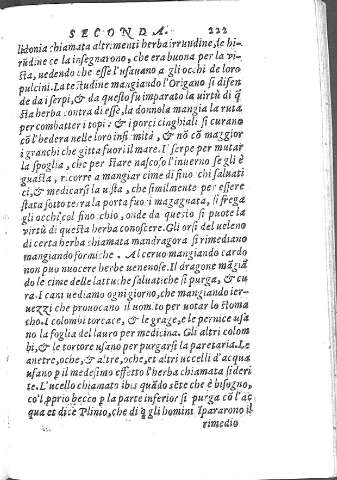 SECONDA. 222
lidonia chiamata altrimenti herba irrundine, le hi-
rũdine ce la insegnarono, che era buona per la vi-
sta, uedendo che esse l'usauano a gli occhi de loro
pulcini. La testudine mangiando l'Origano si difen
de da i serpi, & da questo fu imparato la uirtù di q̃
sta herba contra di esse, la donnola mangia la ruta
per combatter i topi: & i porci cinghiali si curano
cõ l'hedera nelle loro infirmità, & nõ cõ maggior
i granchi che gitta fuori il mare. I serpe per mutar
la spoglia, che per stare nascoso l'inuerno se gli è
guasta, ricorre a mangiar cime di finochi saluati
ci, & medicarsi la uista, che similmente per essere
stata sotto terra la porta fuori magagnata, si frega
gli occhi col finochio, onde da questo si puote la
virtù di questa herba conoscere. Gli orsi del ueleno
di certa herba chiamata mandragora si rimediano
mangiando formiche. Al ceruo mangiando cardo
non può nuocere herbe uenenose. Il dragone mãgiã
do le cime delle lattuche saluatiche si purga, & cu
ra. I cani uediamo ogni giorno, che mangiando ier-
uezzi che prouocano il uomito per uotar lo stoma
cho. I colombi torcace, & le grage, e le pernice usa
no la foglia del lauro per medicina. Gli altri colom
bi, & le tortore usano per purgarsi la paretaria. Le
anetre, oche, & altre, oche, et altri uccelli d'acqua
usano p il medesimo effetto l'herba chiamata sideri
te. L'ucello chiamato ibis quãdo sẽte che è bisogno,
co'l pprio becco p la parte inferior si purga cõ l'ac
qua et dice Plinio, che di q̃ gli homini Ipararono il
rimedio